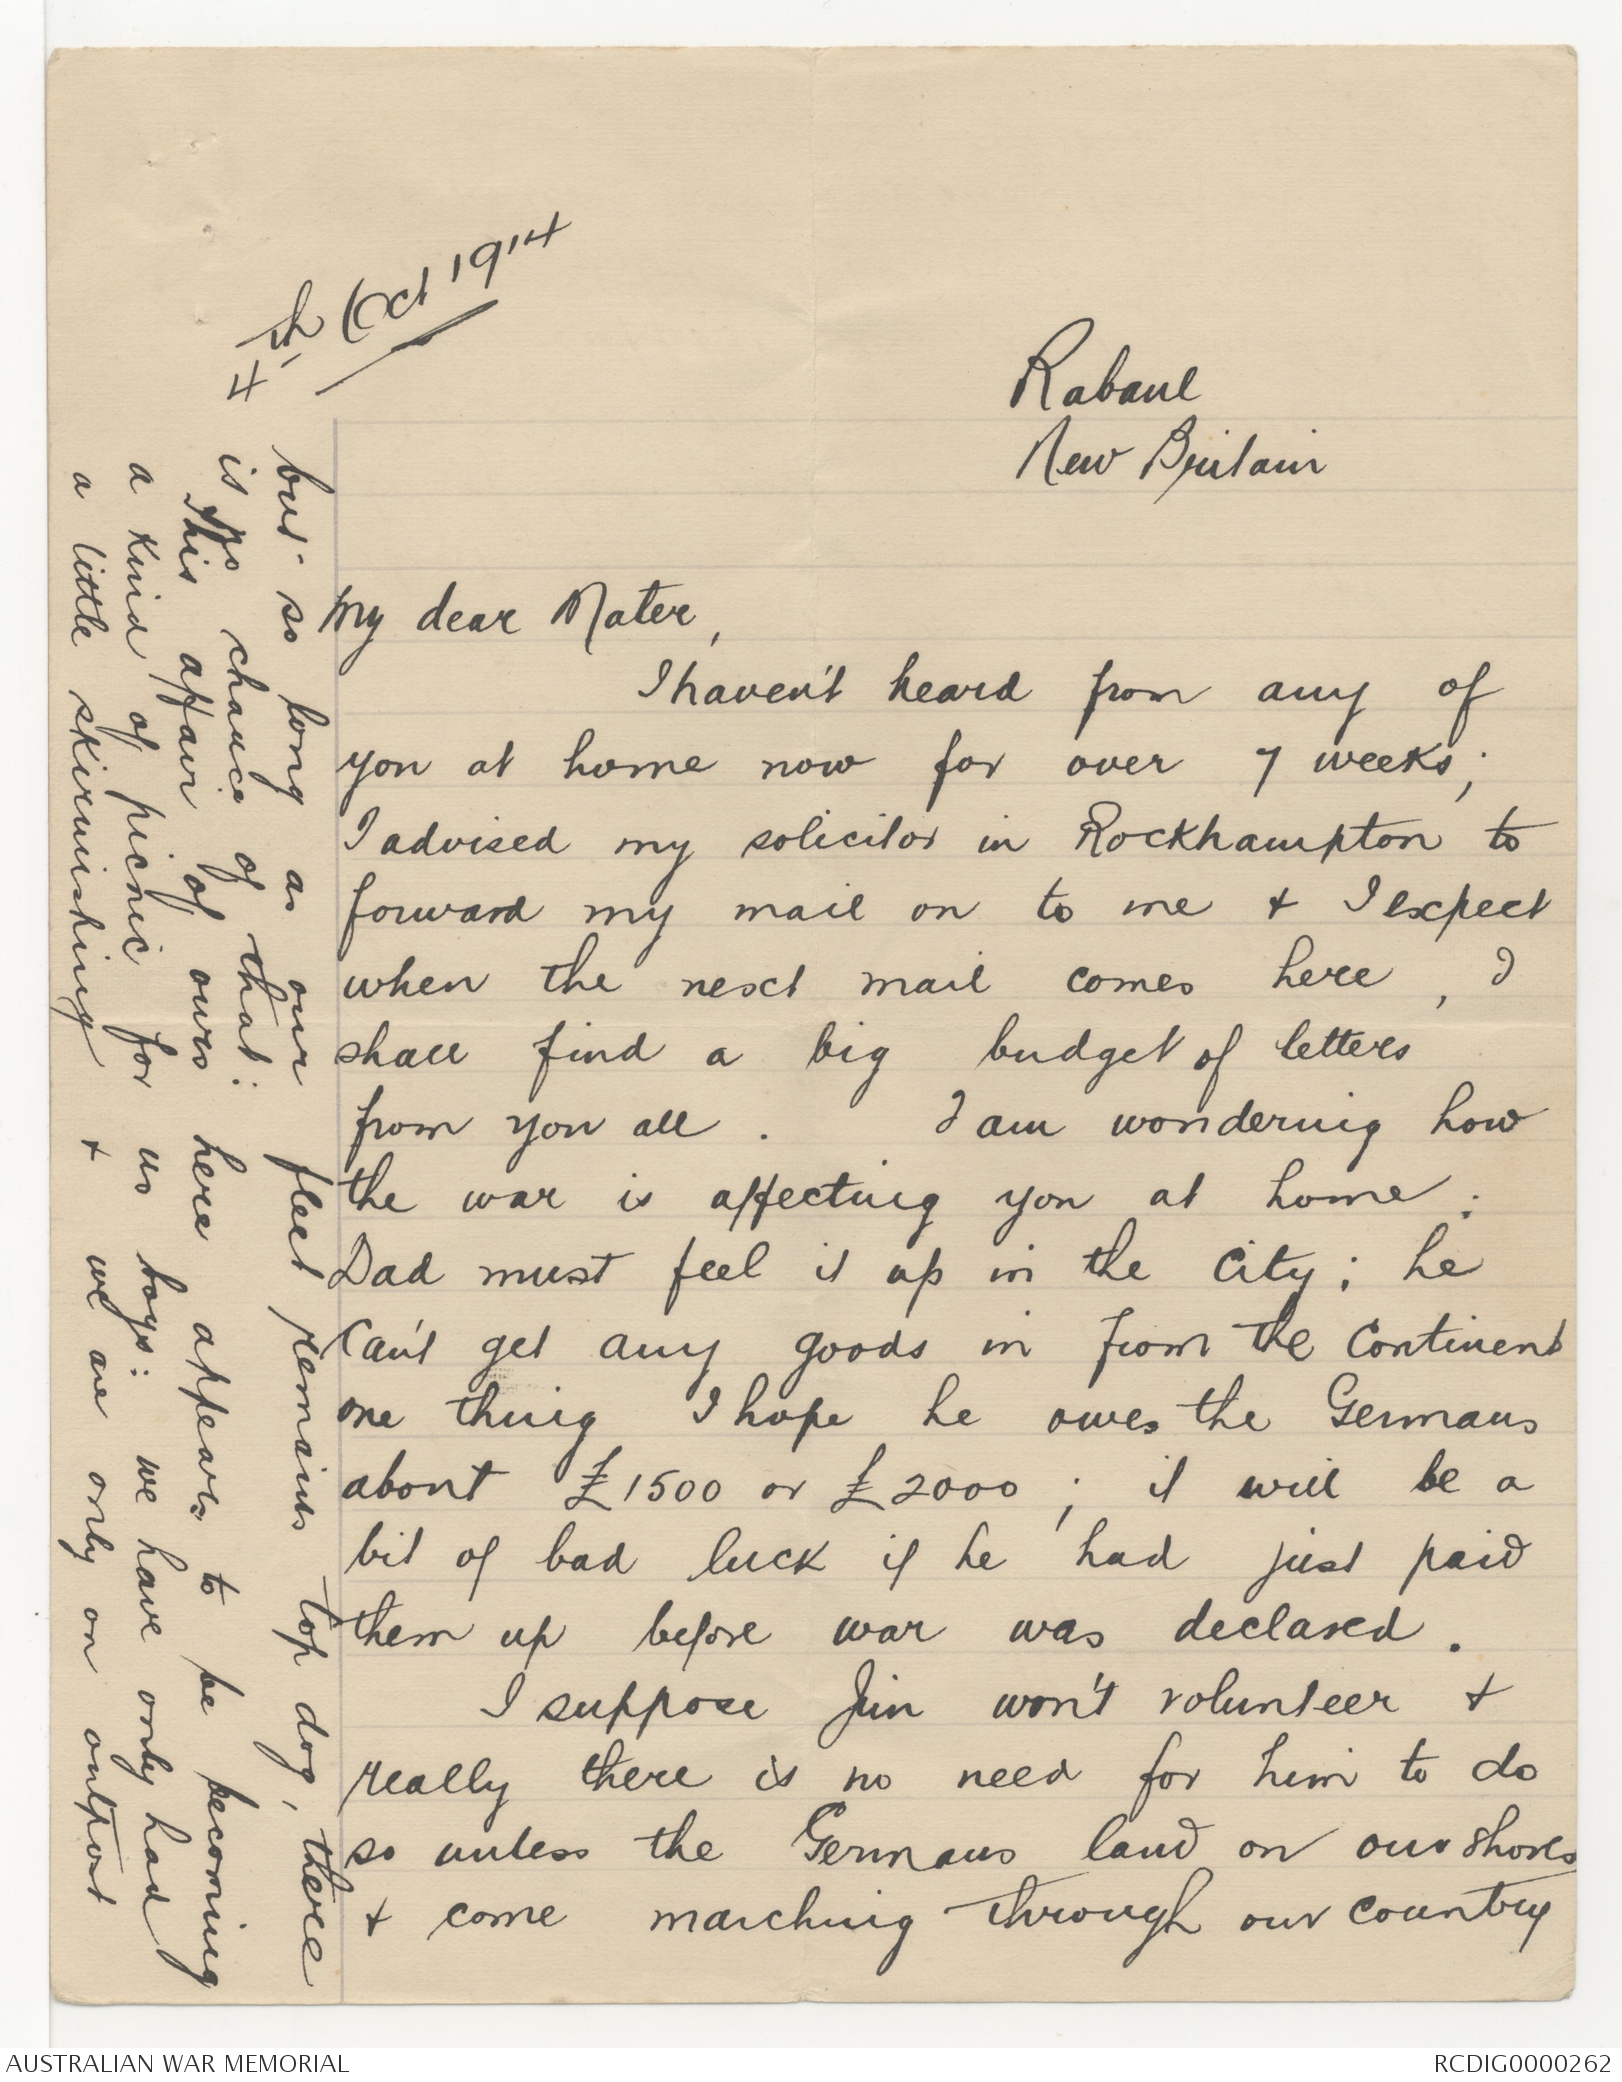 4th Oct 1914
Rabaul
New Britain
My dear Mater,
I haven't heard from any of
you at home now for over 7 weeks;
I advised my solicitor in Rockhampton to
forward my mail on to me + I expect
when the next mail comes here, I
shall find a big budget of letters
from you all. I am wondering how
the war is affecting you at home:
Dad must feel it up in the City; he
can't get any goods in from the Continent
one thing I hope he owes the Germans
about £1500 or £2000; it will be a
bit of bad luck if he had just paid
them up before war was declared.
I suppose Jim won't volunteer +
really there is no need for him to do
so unless the Germans land on our shores
+ come marching through our country
but so long as our fleet remains top dog, there
is no chance of that:
This affair of ours here appears to be becoming
a kind of picnic for us boys: we have only had
a little skirmishing + we are only on outpost
AUSTRALIAN WAR MEMORIAL
RCDIG0000262